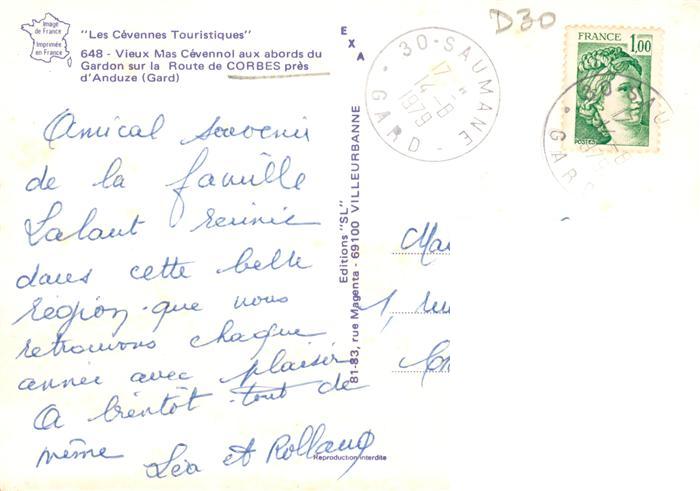 Image
de France
Imprimée
en France
"Les Cévennes Touristiques"
648 - Vieux Mas Cévennol aux abords du
Gardon sur la Route de CORBES près
d'Anduze (Gard)
EXA
D30
30-SAUMANE
17 H
14-8
1979
GARD
FRANCE
1,00
POSTES
30-SAU
GARD
Amical souvenir
de la famille
Lalaut réunie
dans cette belle
région que nous
retrouvons chaque
année avec plaisir
A bientôt tout de
même Léa et Rolland
Editions "SL"
81-83, rue Magenta - 69100 VILLEURBANNE
Reproduction interdite
1,